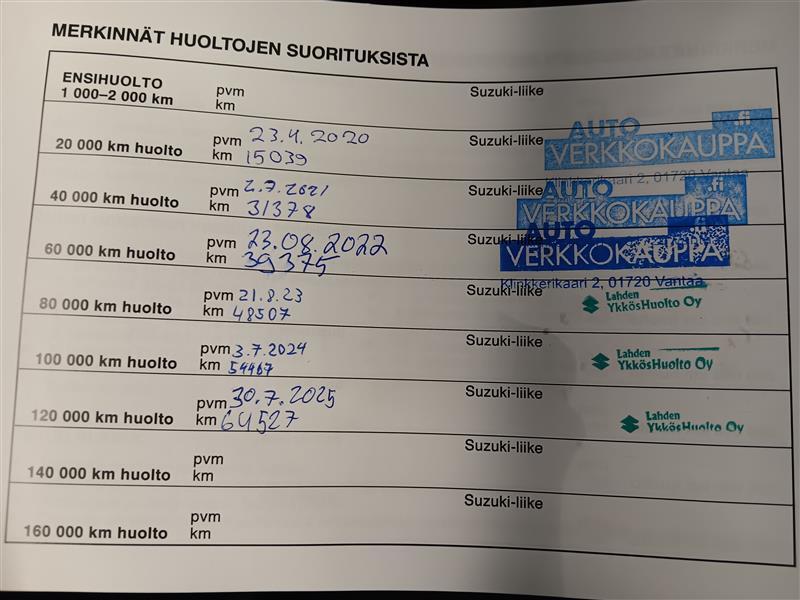 MERKINNÄT HUOLTOJEN SUORITUKSISTA
ENSIHUOLTO
1 000–2 000 km
pvm
km
Suzuki-liike
20 000 km huolto
pvm 23.4.2020
km 15039
Suzuki-liike
AUTO .fi
VERKKOKAUPPA
Klinkkerikaari 2, 01720 Vantaa
40 000 km huolto
pvm 2.7.2021
km 31378
Suzuki-liike
AUTO .fi
VERKKOKAUPPA
60 000 km huolto
pvm 23.08.2022
km 39375
Suzuki-liike
AUTO .fi
VERKKOKAUPPA
Klinkkerikaari 2, 01720 Vantaa
80 000 km huolto
pvm 21.8.23
km 48507
Suzuki-liike
Lahden
YkkösHuolto Oy
100 000 km huolto
pvm 3.7.2024
km 54467
Suzuki-liike
Lahden
YkkösHuolto Oy
120 000 km huolto
pvm 30.7.2025
km 64527
Suzuki-liike
Lahden
YkkösHuolto Oy
140 000 km huolto
pvm
km
Suzuki-liike
160 000 km huolto
pvm
km
Suzuki-liike